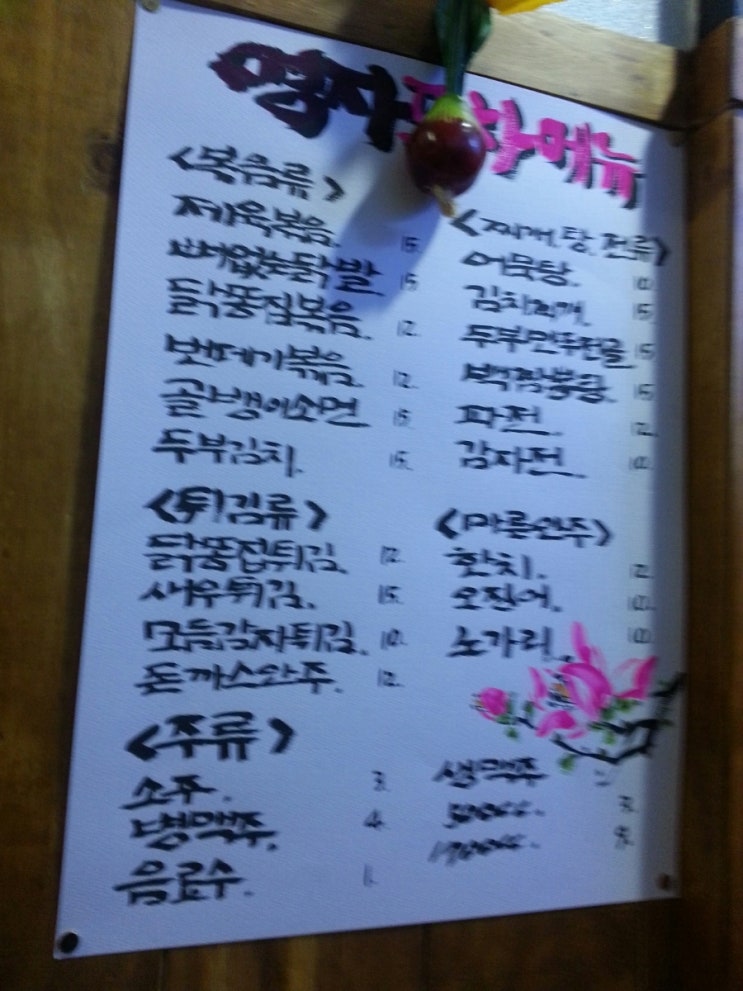 영자 메뉴
<볶음류>
제육볶음. 15.
뼈없는닭발 15.
닭똥집볶음. 12.
번데기볶음. 12.
골뱅이소면 15.
두부김치. 15.
<튀김류>
닭똥집튀김. 12.
새우튀김. 15.
모듬감자튀김. 10.
돈까스안주. 12.
<주류>
소주. 3.
병맥주. 4.
음료수. 1.
<찌개.탕.전류>
어묵탕. 10.
김치찌개. 15.
두부만두전골. 15.
백짬뽕탕. 15.
파전. 12.
감자전. 10.
<마른안주>
한치. 12.
오징어. 10.
노가리. 10.
생맥주
500cc. 3.
1700cc. 9.